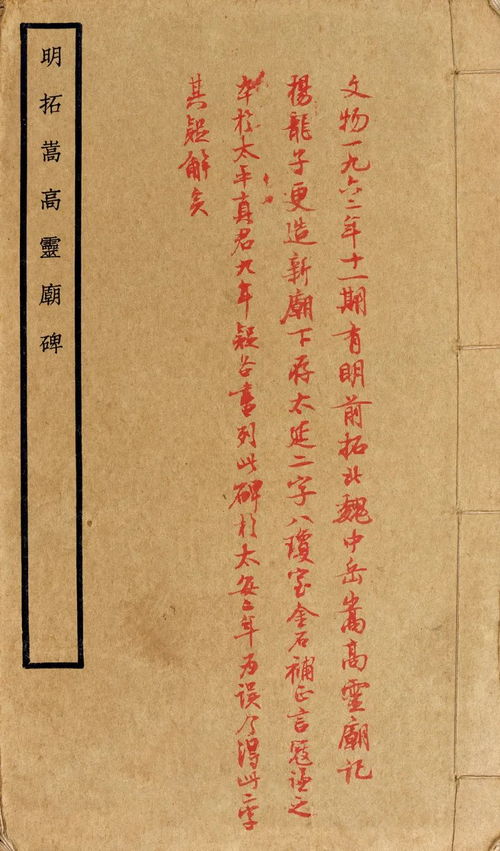 文物一九六二年十一期有明前拓北魏中岳嵩高靈廟記
楊龍子更造新廟下存太延二字八瓊室金石補正言寇謙之
卒於太平真君九年疑各書列此碑於太安二年为誤今得此二字
其疑解矣
明拓嵩高靈廟碑